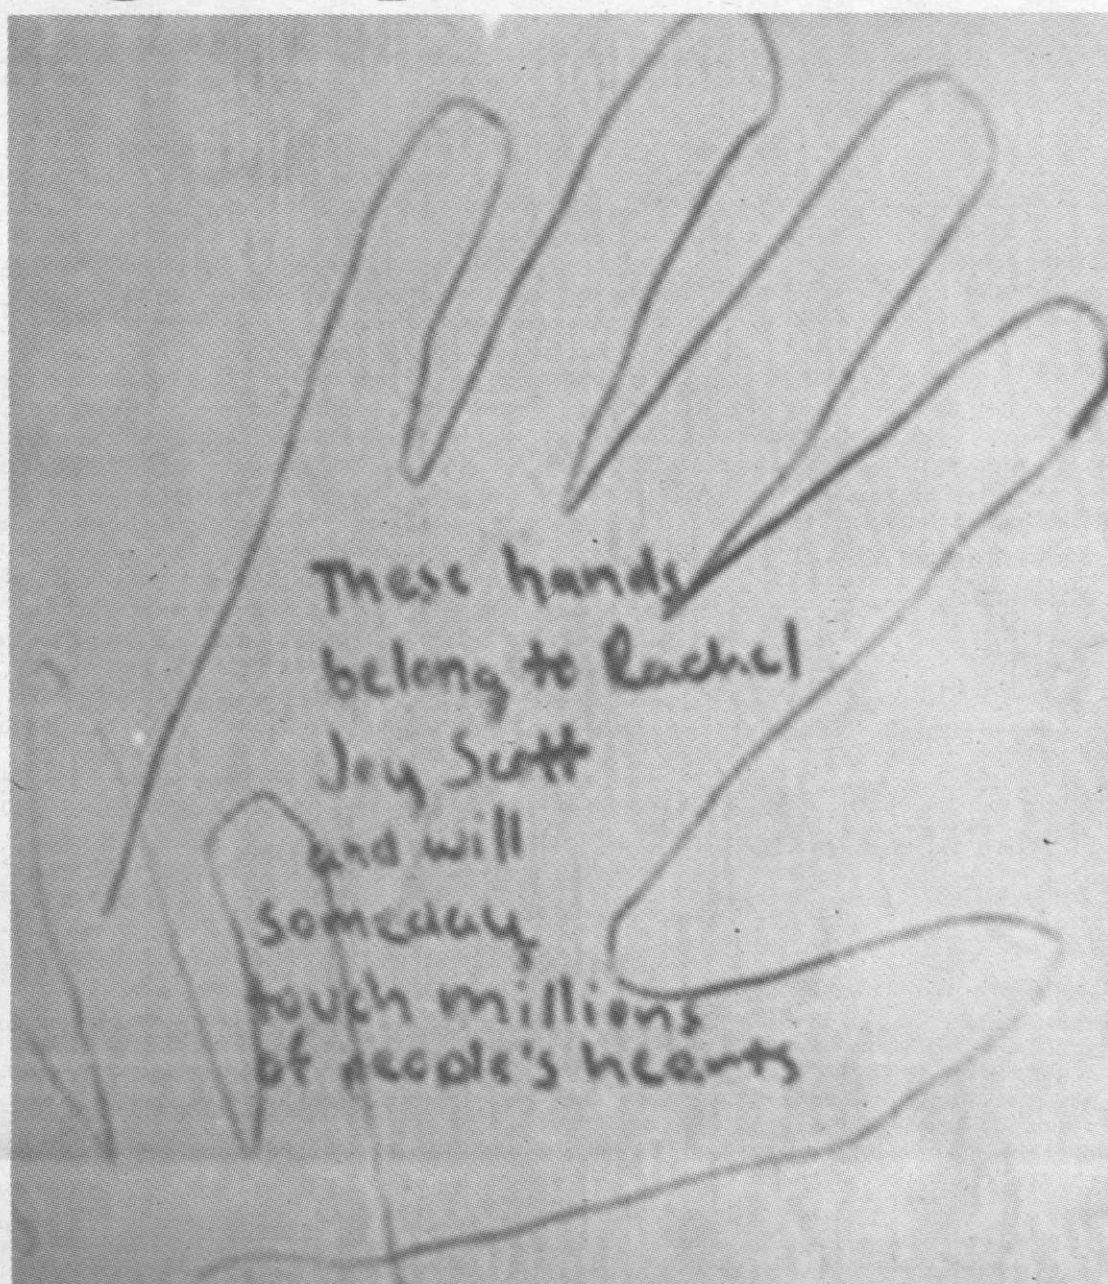 These hands
belong to Rachel
Joy Scott
and will
someday
touch millions
of people's hearts